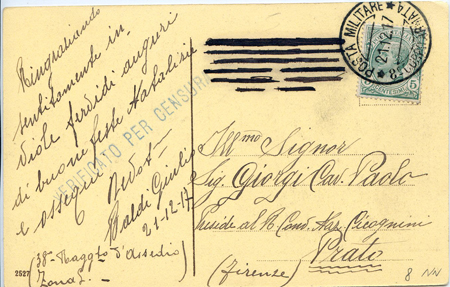 Ringraziando
sentitamente in-
viole fervidi auguri
di buone feste Natalizie
e ossequi
Devot-
Baldi Giulio
21-12-17
(38- Maggto d'Assedio)
Zona
VERIFICATO PER CENSURA
POSTA MILITARE
21.12.17
5
Ill mo Signor
Sig. Giorgi Cav. Paolo
Preside al R. Conv. Naz. Cicognini
Prato
(Firenze)
2527
8 NN